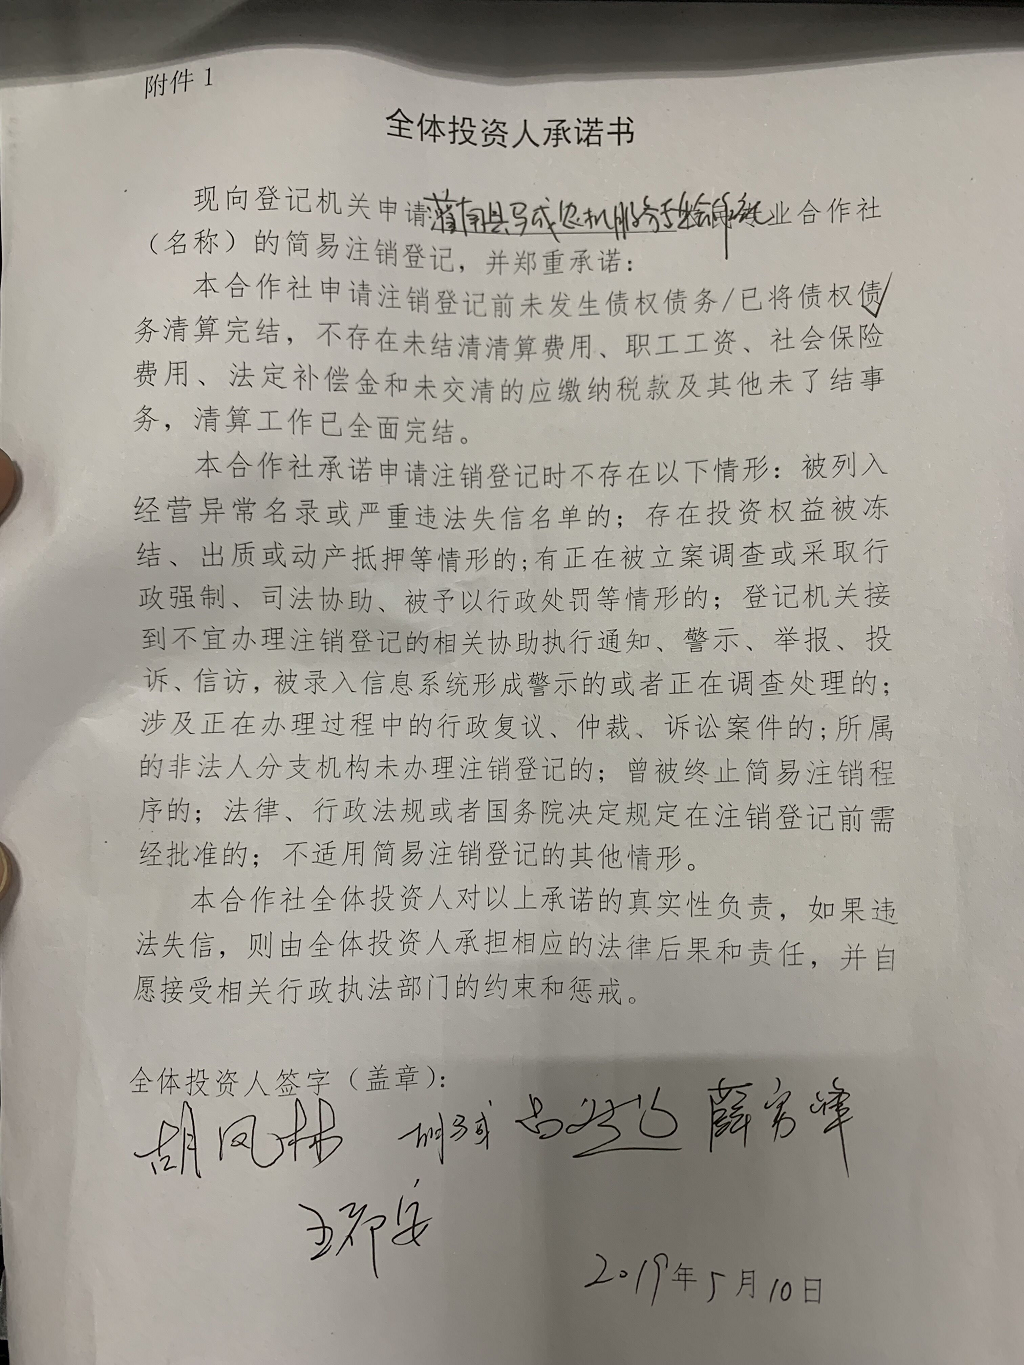 附件1
全体投资人承诺书
现向登记机关申请灌南县马成农机服务专业合作社
（名称）的简易注销登记，并郑重承诺：
本合作社申请注销登记前未发生债权债务/已将债权债
务清算完结，不存在未结清清算费用、职工工资、社会保险
费用、法定补偿金和未交清的应缴纳税款及其他未了结事
务，清算工作已全面完结。
本合作社承诺申请注销登记时不存在以下情形：被列入
经营异常名录或严重违法失信名单的；存在投资权益被冻
结、出质或动产抵押等情形的；有正在被立案调查或采取行
政强制、司法协助、被予以行政处罚等情形的；登记机关接
到不宜办理注销登记的相关协助执行通知、警示、举报、投
诉、信访，被录入信息系统形成警示的或者正在调查处理的；
涉及正在办理过程中的行政复议、仲裁、诉讼案件的；所属
的非法人分支机构未办理注销登记的；曾被终止简易注销程
序的；法律、行政法规或者国务院决定规定在注销登记前需
经批准的；不适用简易注销登记的其他情形。
本合作社全体投资人对以上承诺的真实性负责，如果违
法失信，则由全体投资人承担相应的法律后果和责任，并自
愿接受相关行政执法部门的约束和惩戒。
全体投资人签字（盖章）：
胡凤林 胡马成
2019年5月10日